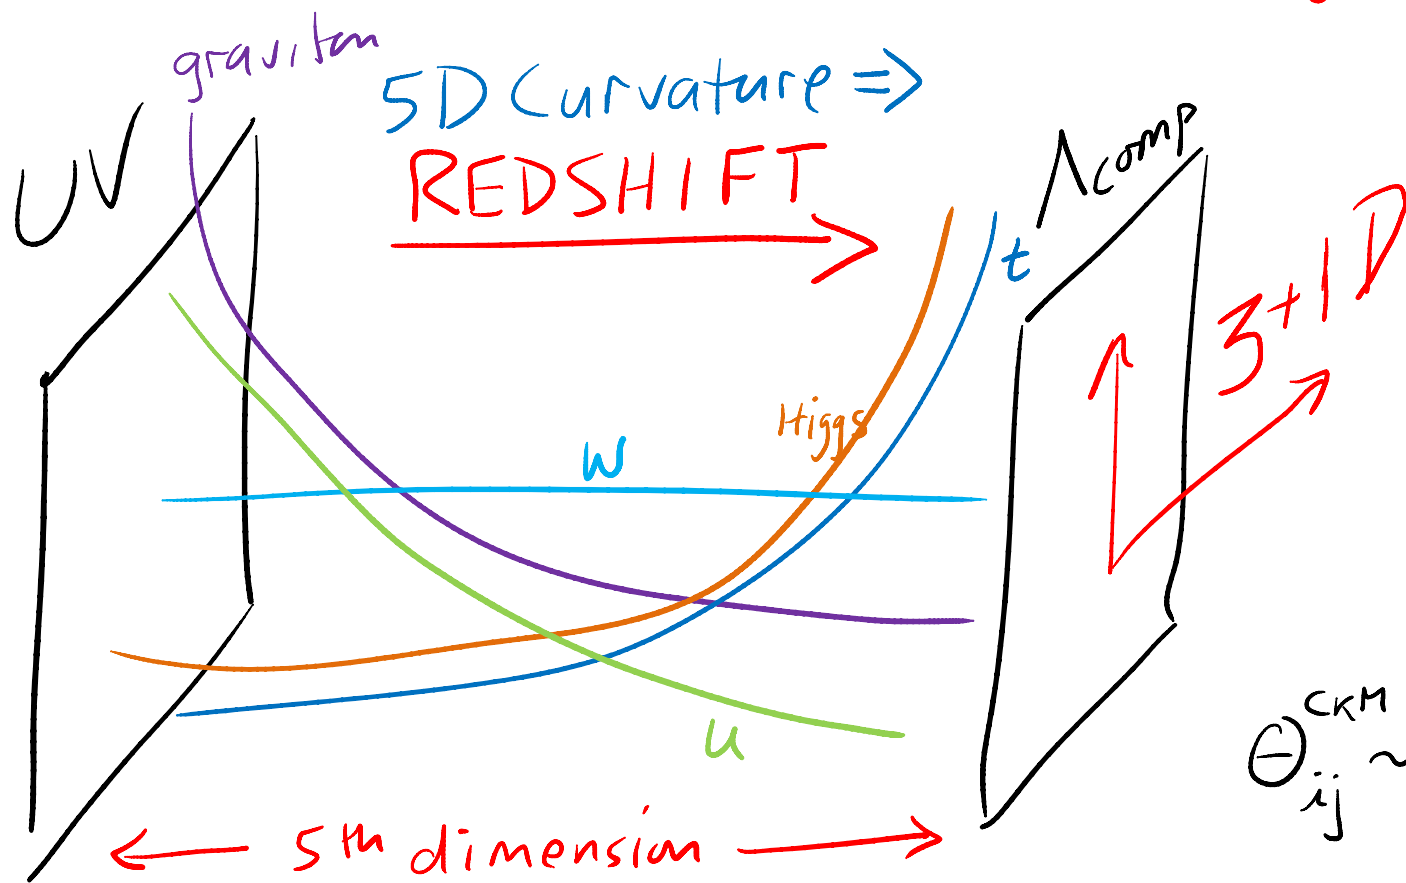 graviton
5D Curvature ⇒
UV
REDSHIFT
Λcomp
t
3+1D
Higgs
W
u
Θij^CKM ~
5th dimension